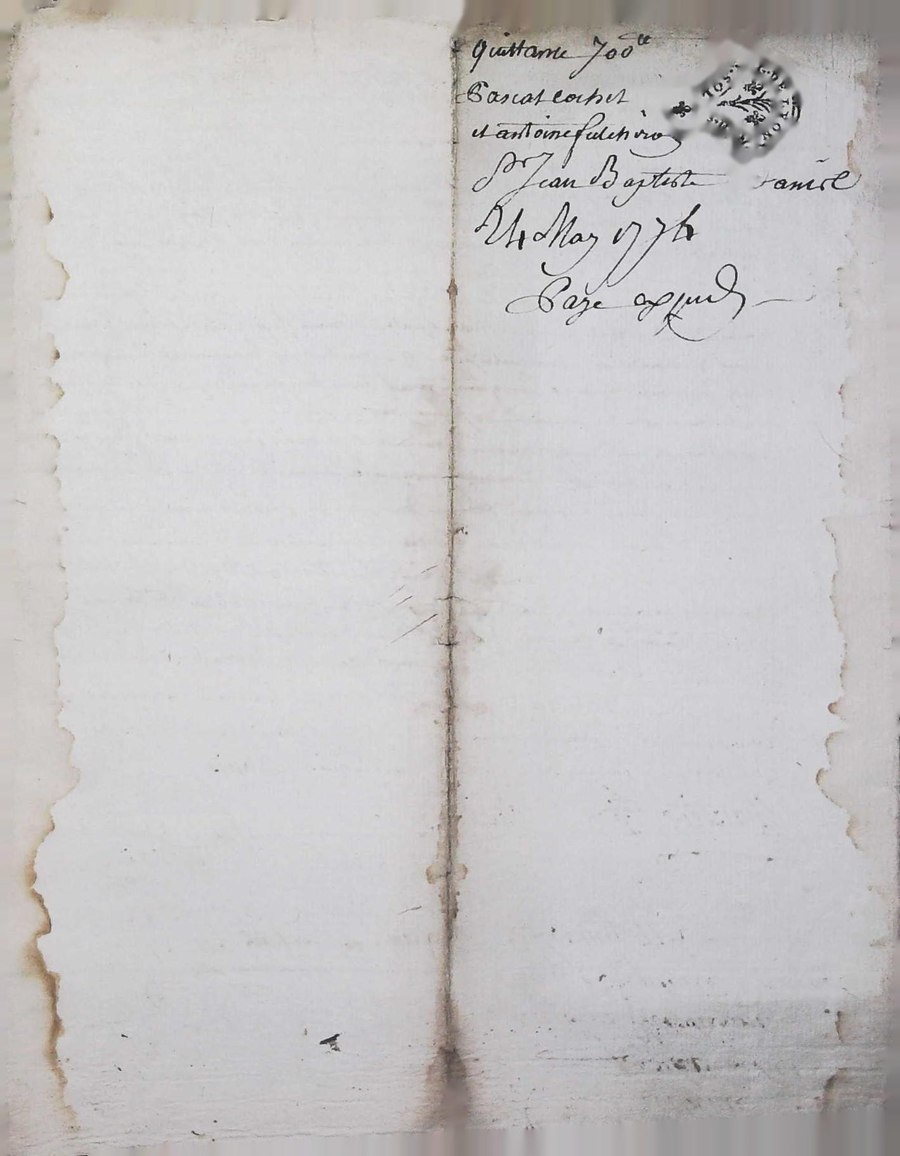 Quittance 700ᵗᵗ
Pascal cochet
et antoine fulchiron
Sʳ Jean Baptiste
24 May 1774
Payé